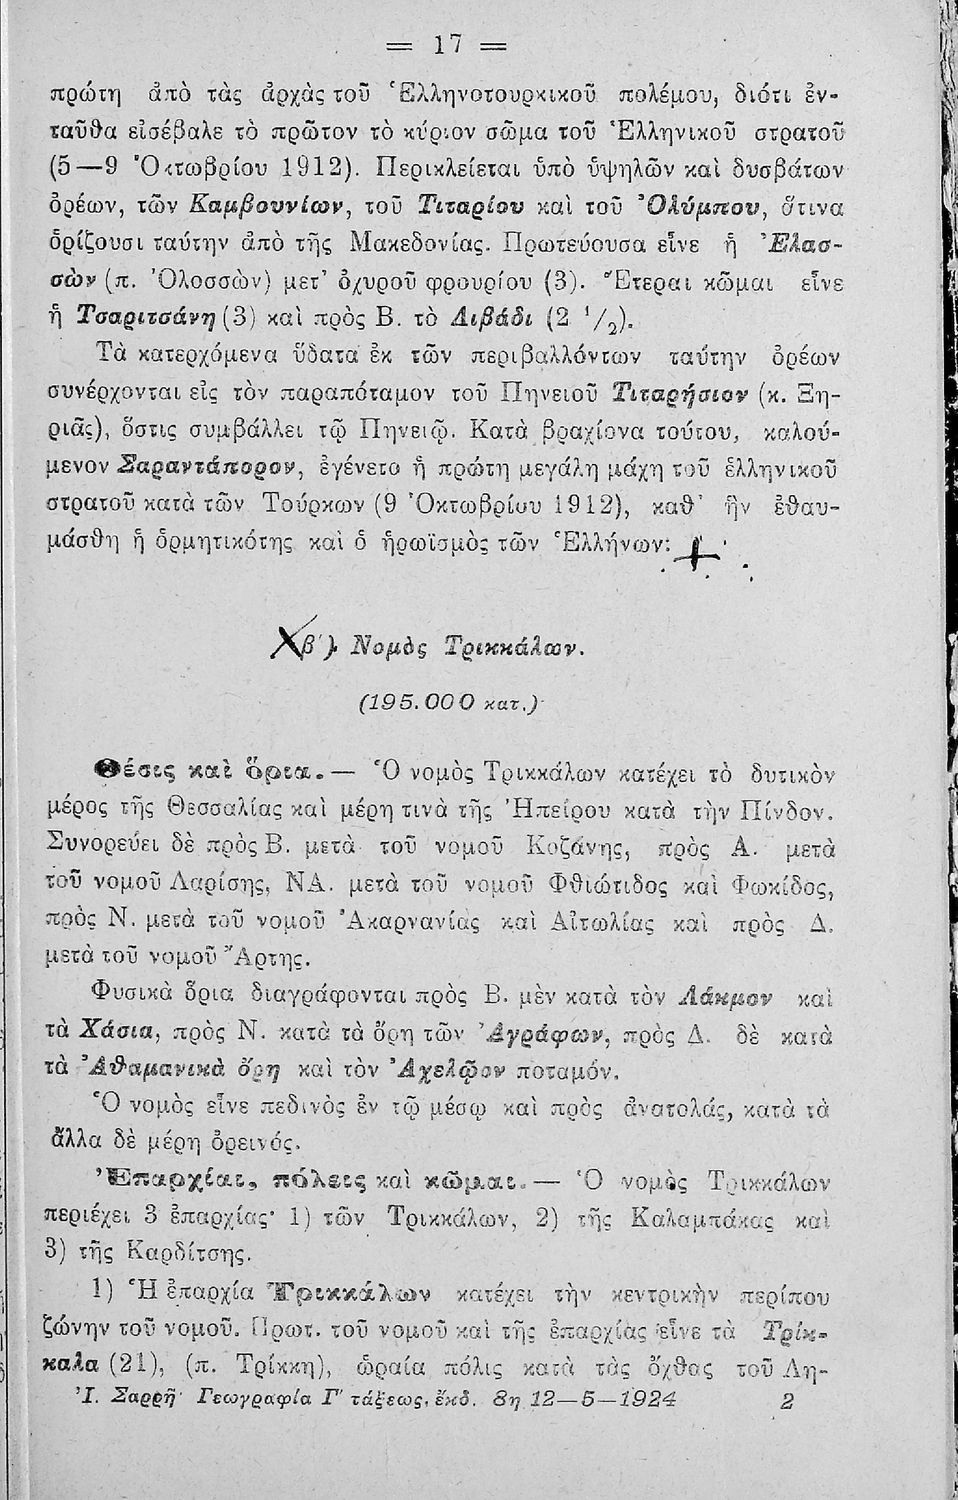 = 17 =
πρώτη ἀπὸ τὰς ἀρχὰς τοῦ Ἑλληνοτουρκικοῦ πολέμου, διότι ἐν-
ταῦθα εἰσέβαλε τὸ πρῶτον τὸ κύριον σῶμα τοῦ Ἑλληνικοῦ στρατοῦ
(5—9 Ὀκτωβρίου 1912). Περικλείεται ὑπὸ ὑψηλῶν καὶ δυσβάτων
ὀρέων, τῶν Καμβουνίων, τοῦ Τιταρίου καὶ τοῦ Ὀλύμπου, ἅτινα
ὁρίζουσι ταύτην ἀπὸ τῆς Μακεδονίας. Πρωτεύουσα εἶνε ἡ Ἐλασ-
σὼν (π. Ὀλοσσὼν) μετ' ὀχυροῦ φρουρίου (3). Ἕτεραι κῶμαι εἶνε
ἡ Τσαριτσάνη (3) καὶ πρὸς Β. τὸ Λιβάδι (2 1/2).
Τὰ κατερχόμενα ὕδατα ἐκ τῶν περιβαλλόντων ταύτην ὀρέων
συνέρχονται εἰς τὸν παραπόταμον τοῦ Πηνειοῦ Τιταρήσιον (κ. Ξη-
ριᾶς), ὅστις συμβάλλει τῷ Πηνειῷ. Κατὰ βραχίονα τούτου, καλού-
μενον Σαραντάπορον, ἐγένετο ἡ πρώτη μεγάλη μάχη τοῦ ἑλληνικοῦ
στρατοῦ κατὰ τῶν Τούρκων (9 Ὀκτωβρίου 1912), καθ' ἣν ἐθαυ-
μάσθη ἡ ὁρμητικότης καὶ ὁ ἡρωϊσμὸς τῶν Ἑλλήνων:
β') Νομὸς Τρικκάλων.
(195.000 κατ.)
Θέσις καὶ ὅρια.— Ὁ νομὸς Τρικκάλων κατέχει τὸ δυτικὸν
μέρος τῆς Θεσσαλίας καὶ μέρη τινὰ τῆς Ἠπείρου κατὰ τὴν Πίνδον.
Συνορεύει δὲ πρὸς Β. μετὰ τοῦ νομοῦ Κοζάνης, πρὸς Α. μετὰ
τοῦ νομοῦ Λαρίσης, ΝΑ. μετὰ τοῦ νομοῦ Φθιώτιδος καὶ Φωκίδος,
πρὸς Ν. μετὰ τοῦ νομοῦ Ἀκαρνανίας καὶ Αἰτωλίας καὶ πρὸς Δ.
μετὰ τοῦ νομοῦ Ἄρτης.
Φυσικὰ ὅρια διαγράφονται πρὸς Β. μὲν κατὰ τὸν Λάκμον καὶ
τὰ Χάσια, πρὸς Ν. κατὰ τὰ ὄρη τῶν Ἀγράφων, πρὸς Δ. δὲ κατὰ
τὰ Ἀθαμανικὰ ὄρη καὶ τὸν Ἀχελῷον ποταμόν.
Ὁ νομὸς εἶνε πεδινὸς ἐν τῷ μέσῳ καὶ πρὸς ἀνατολάς, κατὰ τὰ
ἄλλα δὲ μέρη ὀρεινός.
Ἐπαρχίαι, πόλεις καὶ κῶμαι.— Ὁ νομὸς Τρικκάλων
περιέχει 3 ἐπαρχίας· 1) τῶν Τρικκάλων, 2) τῆς Καλαμπάκας καὶ
3) τῆς Καρδίτσης.
1) Ἡ ἐπαρχία Τρικκάλων κατέχει τὴν κεντρικὴν περίπου
ζώνην τοῦ νομοῦ. Πρωτ. τοῦ νομοῦ καὶ τῆς ἐπαρχίας εἶνε τὰ Τρίκ-
καλα (21), (π. Τρίκκη), ὡραία πόλις κατὰ τὰς ὄχθας τοῦ Λη-
Ἰ. Σαρρῆ Γεωγραφία Γ' τάξεως, ἔκδ. 8η 12—5—1924 2